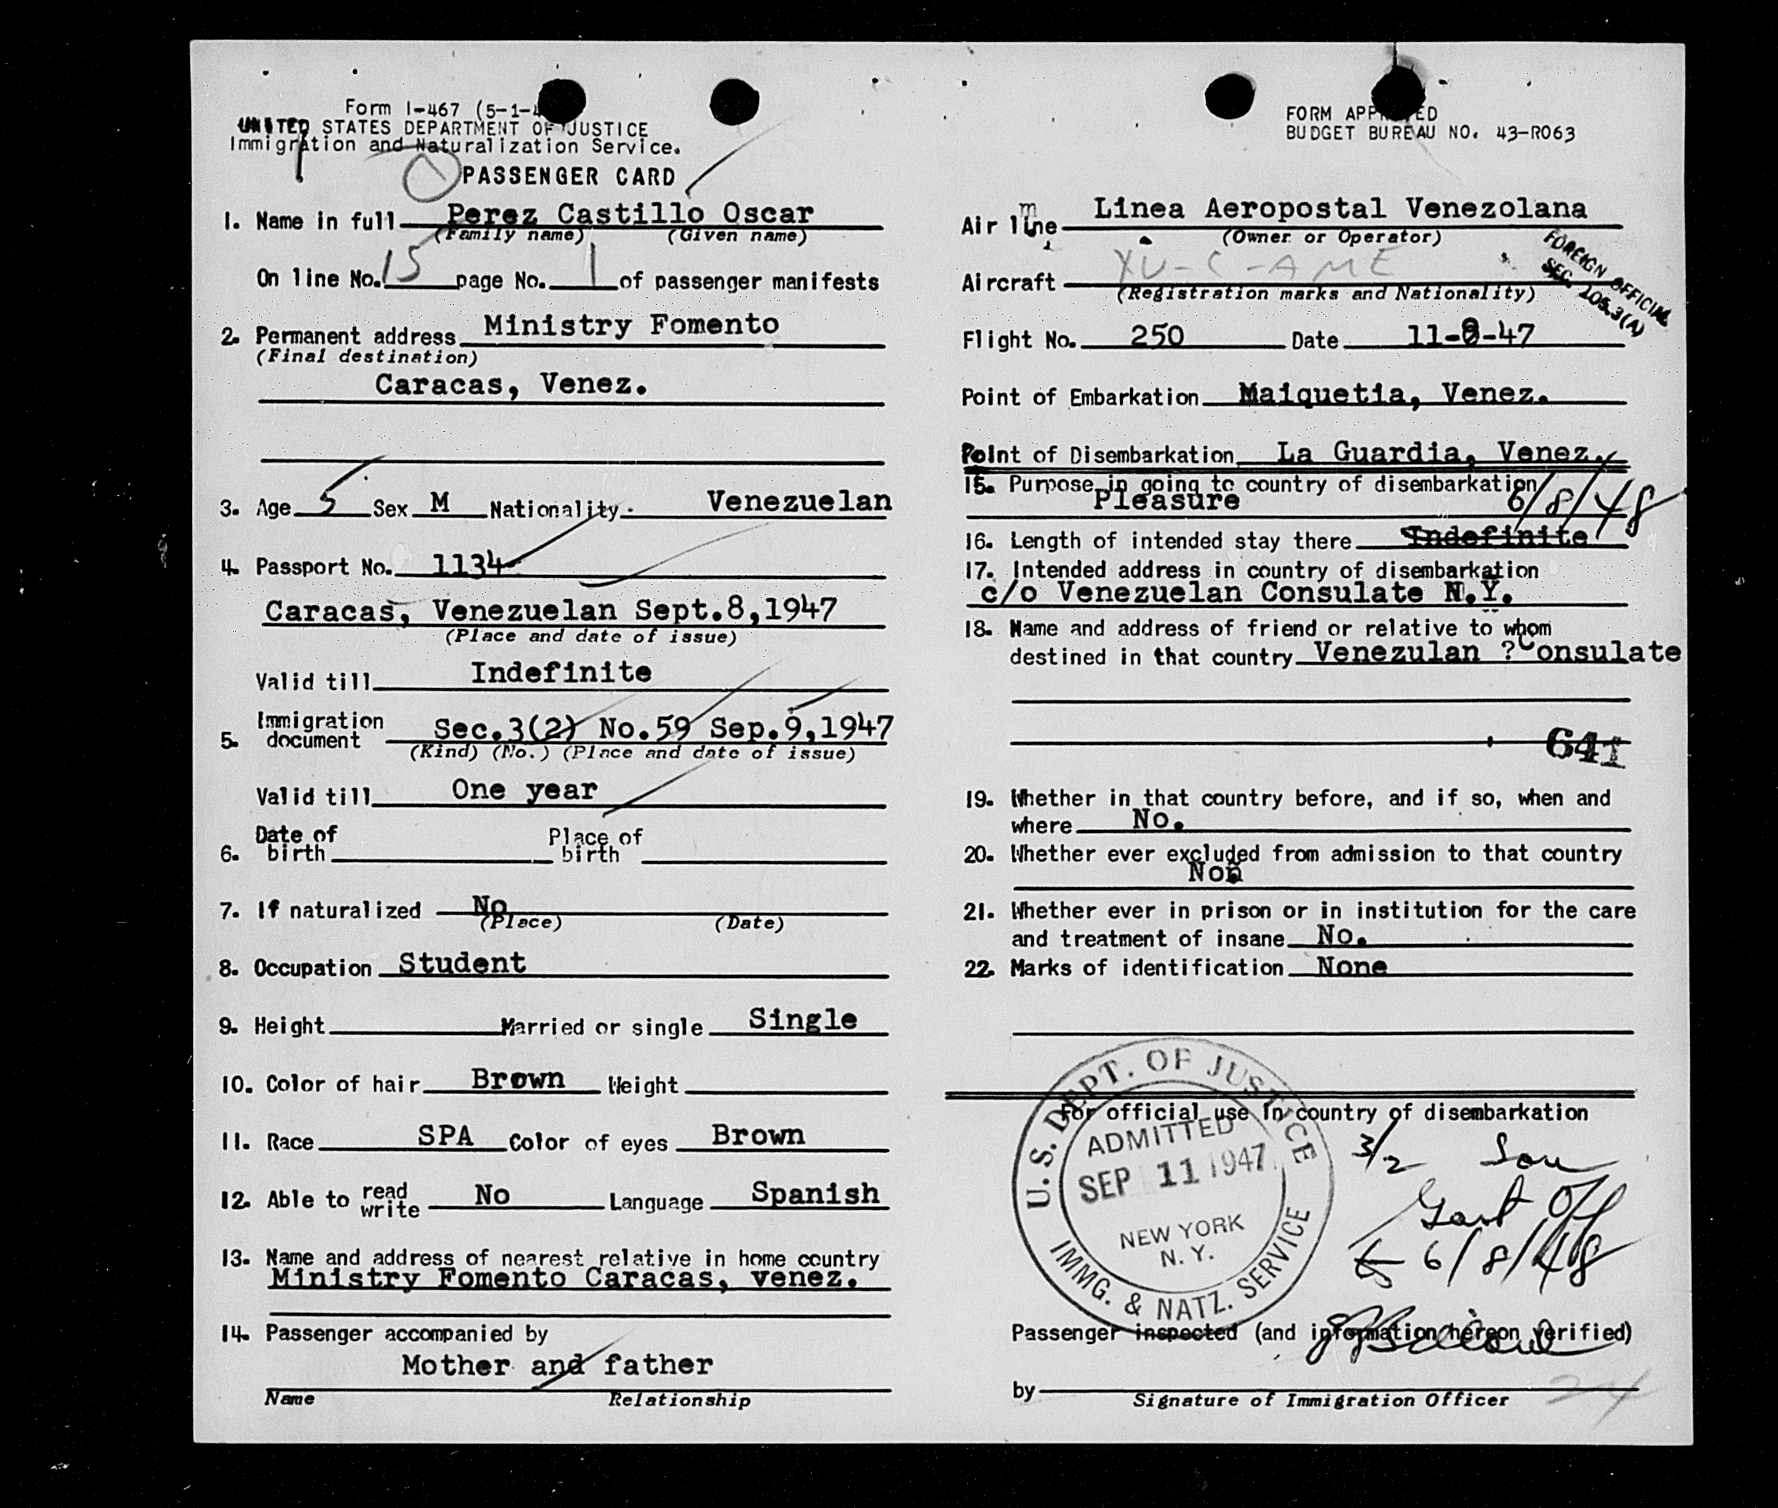 Form I-467 (5-1-4
UNITED STATES DEPARTMENT OF JUSTICE
Immigration and Naturalization Service.
PASSENGER CARD
1. Name in full Perez Castillo Oscar
(Family name) (Given name)
On line No. 15 page No. 1 of passenger manifests
2. Permanent address Ministry Fomento
(Final destination)
Caracas, Venez.
3. Age 5 Sex M Nationality Venezuelan
4. Passport No. 1134
Caracas, Venezuelan Sept.8,1947
(Place and date of issue)
Valid till Indefinite
5. Immigration document Sec.3(2) No.59 Sep.9,1947
(Kind) (No.) (Place and date of issue)
Valid till One year
6. Date of birth Place of birth
7. If naturalized No
(Place) (Date)
8. Occupation Student
9. Height Married or single Single
10. Color of hair Brown Weight
11. Race SPA Color of eyes Brown
12. Able to read write No Language Spanish
13. Name and address of nearest relative in home country
Ministry Fomento Caracas, venez.
14. Passenger accompanied by
Mother and father
Name Relationship
FORM APPROVED
BUDGET BUREAU NO. 43-R063
Air line Linea Aeropostal Venezolana
(Owner or Operator)
FOREIGN OFFICIAL
SEC. 105.3(A)
Aircraft YV-C-AME
(Registration marks and Nationality)
Flight No. 250 Date 11-9-47
Point of Embarkation Maiquetia, Venez.
Point of Disembarkation La Guardia, Venez.
15. Purpose in going to country of disembarkation
Pleasure 6/8/48
16. Length of intended stay there Indefinite
17. Intended address in country of disembarkation
c/o Venezuelan Consulate N.Y.
18. Name and address of friend or relative to whom
destined in that country Venezulan ?Consulate
641
19. Whether in that country before, and if so, when and
where No.
20. Whether ever excluded from admission to that country
Non
21. Whether ever in prison or in institution for the care
and treatment of insane No.
22. Marks of identification None
For official use in country of disembarkation
U.S. DEPT. OF JUSTICE
ADMITTED
SEP 11 1947
NEW YORK
N. Y.
IMMG. & NATZ. SERVICE
3/2 Son
Off
6/8/48
Passenger inspected (and information hereon verified)
by
Signature of Immigration Officer
24